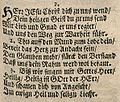 HErr Jesu Christ dich zu uns wend/
Dein heilgen Geist du zu uns send/
Mit Lieb und Gnad er uns regier/
und uns den Weg zur Warheit führ.
2. Thu auf den Mund zum Lobe dein/
Bereit das Hertz zur Andacht fein/
Den Glauben mehr/ stärck den Verstand
Daß uns dein Nam werd wol bekandt.
3. Biß wir singen mit Gottes Heer
Heilig/ Heilig ist GOtt der HErr/
und schauen dich von Angesicht/
in ewger Freud und selgem Liecht.